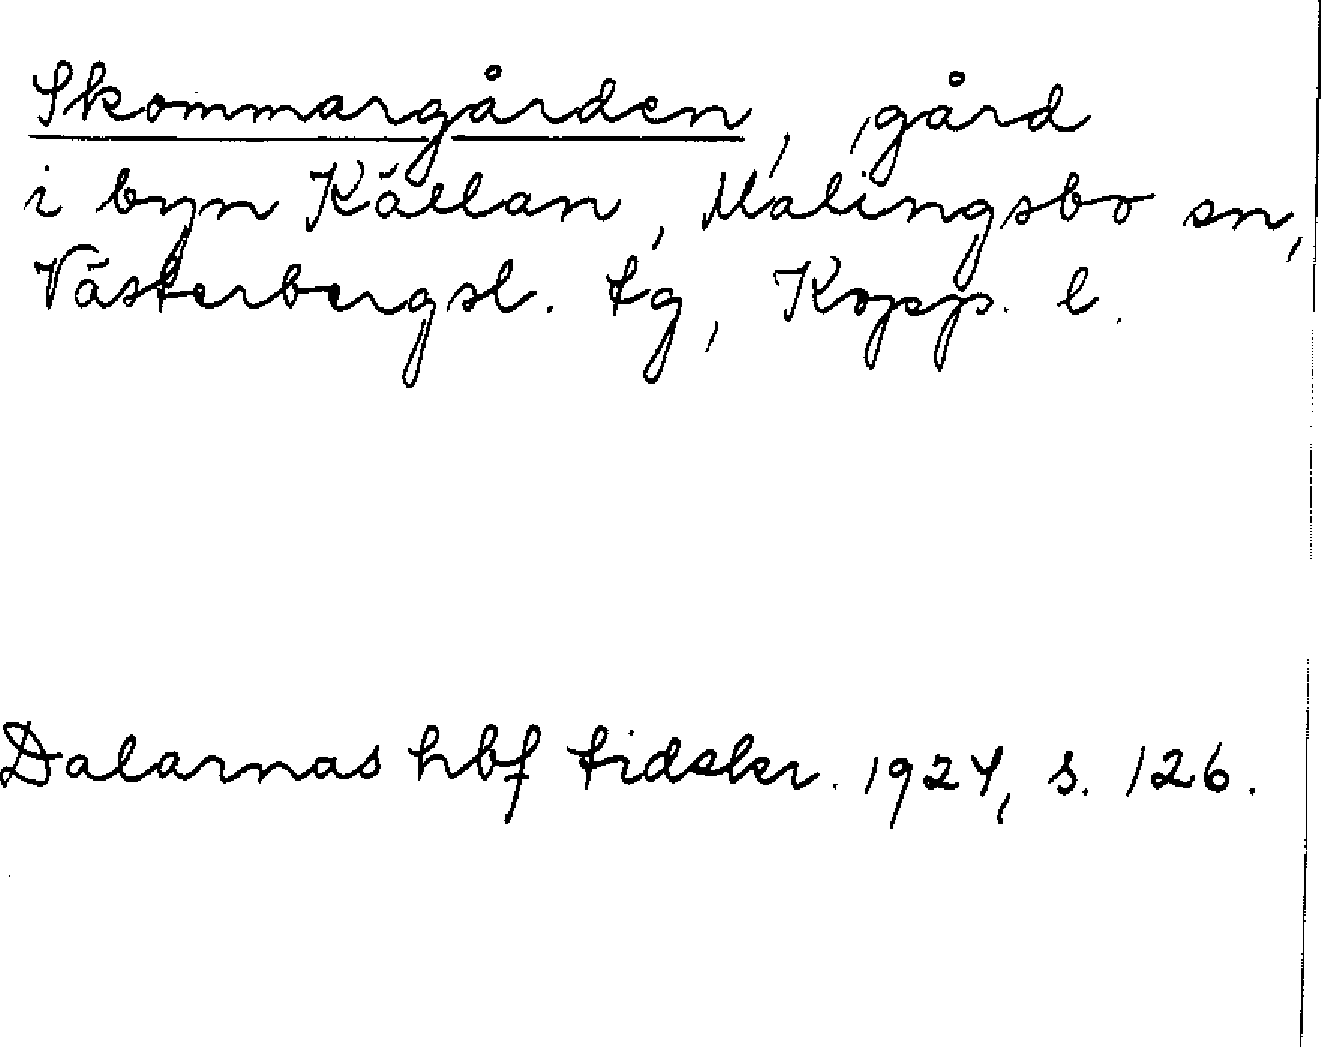 Skommargården, gård
i byn Källan, Malingsbo sn,
Västerbergsl. tg, Kopp. l.
Dalarnas hbf tidskr. 1924, s. 126.